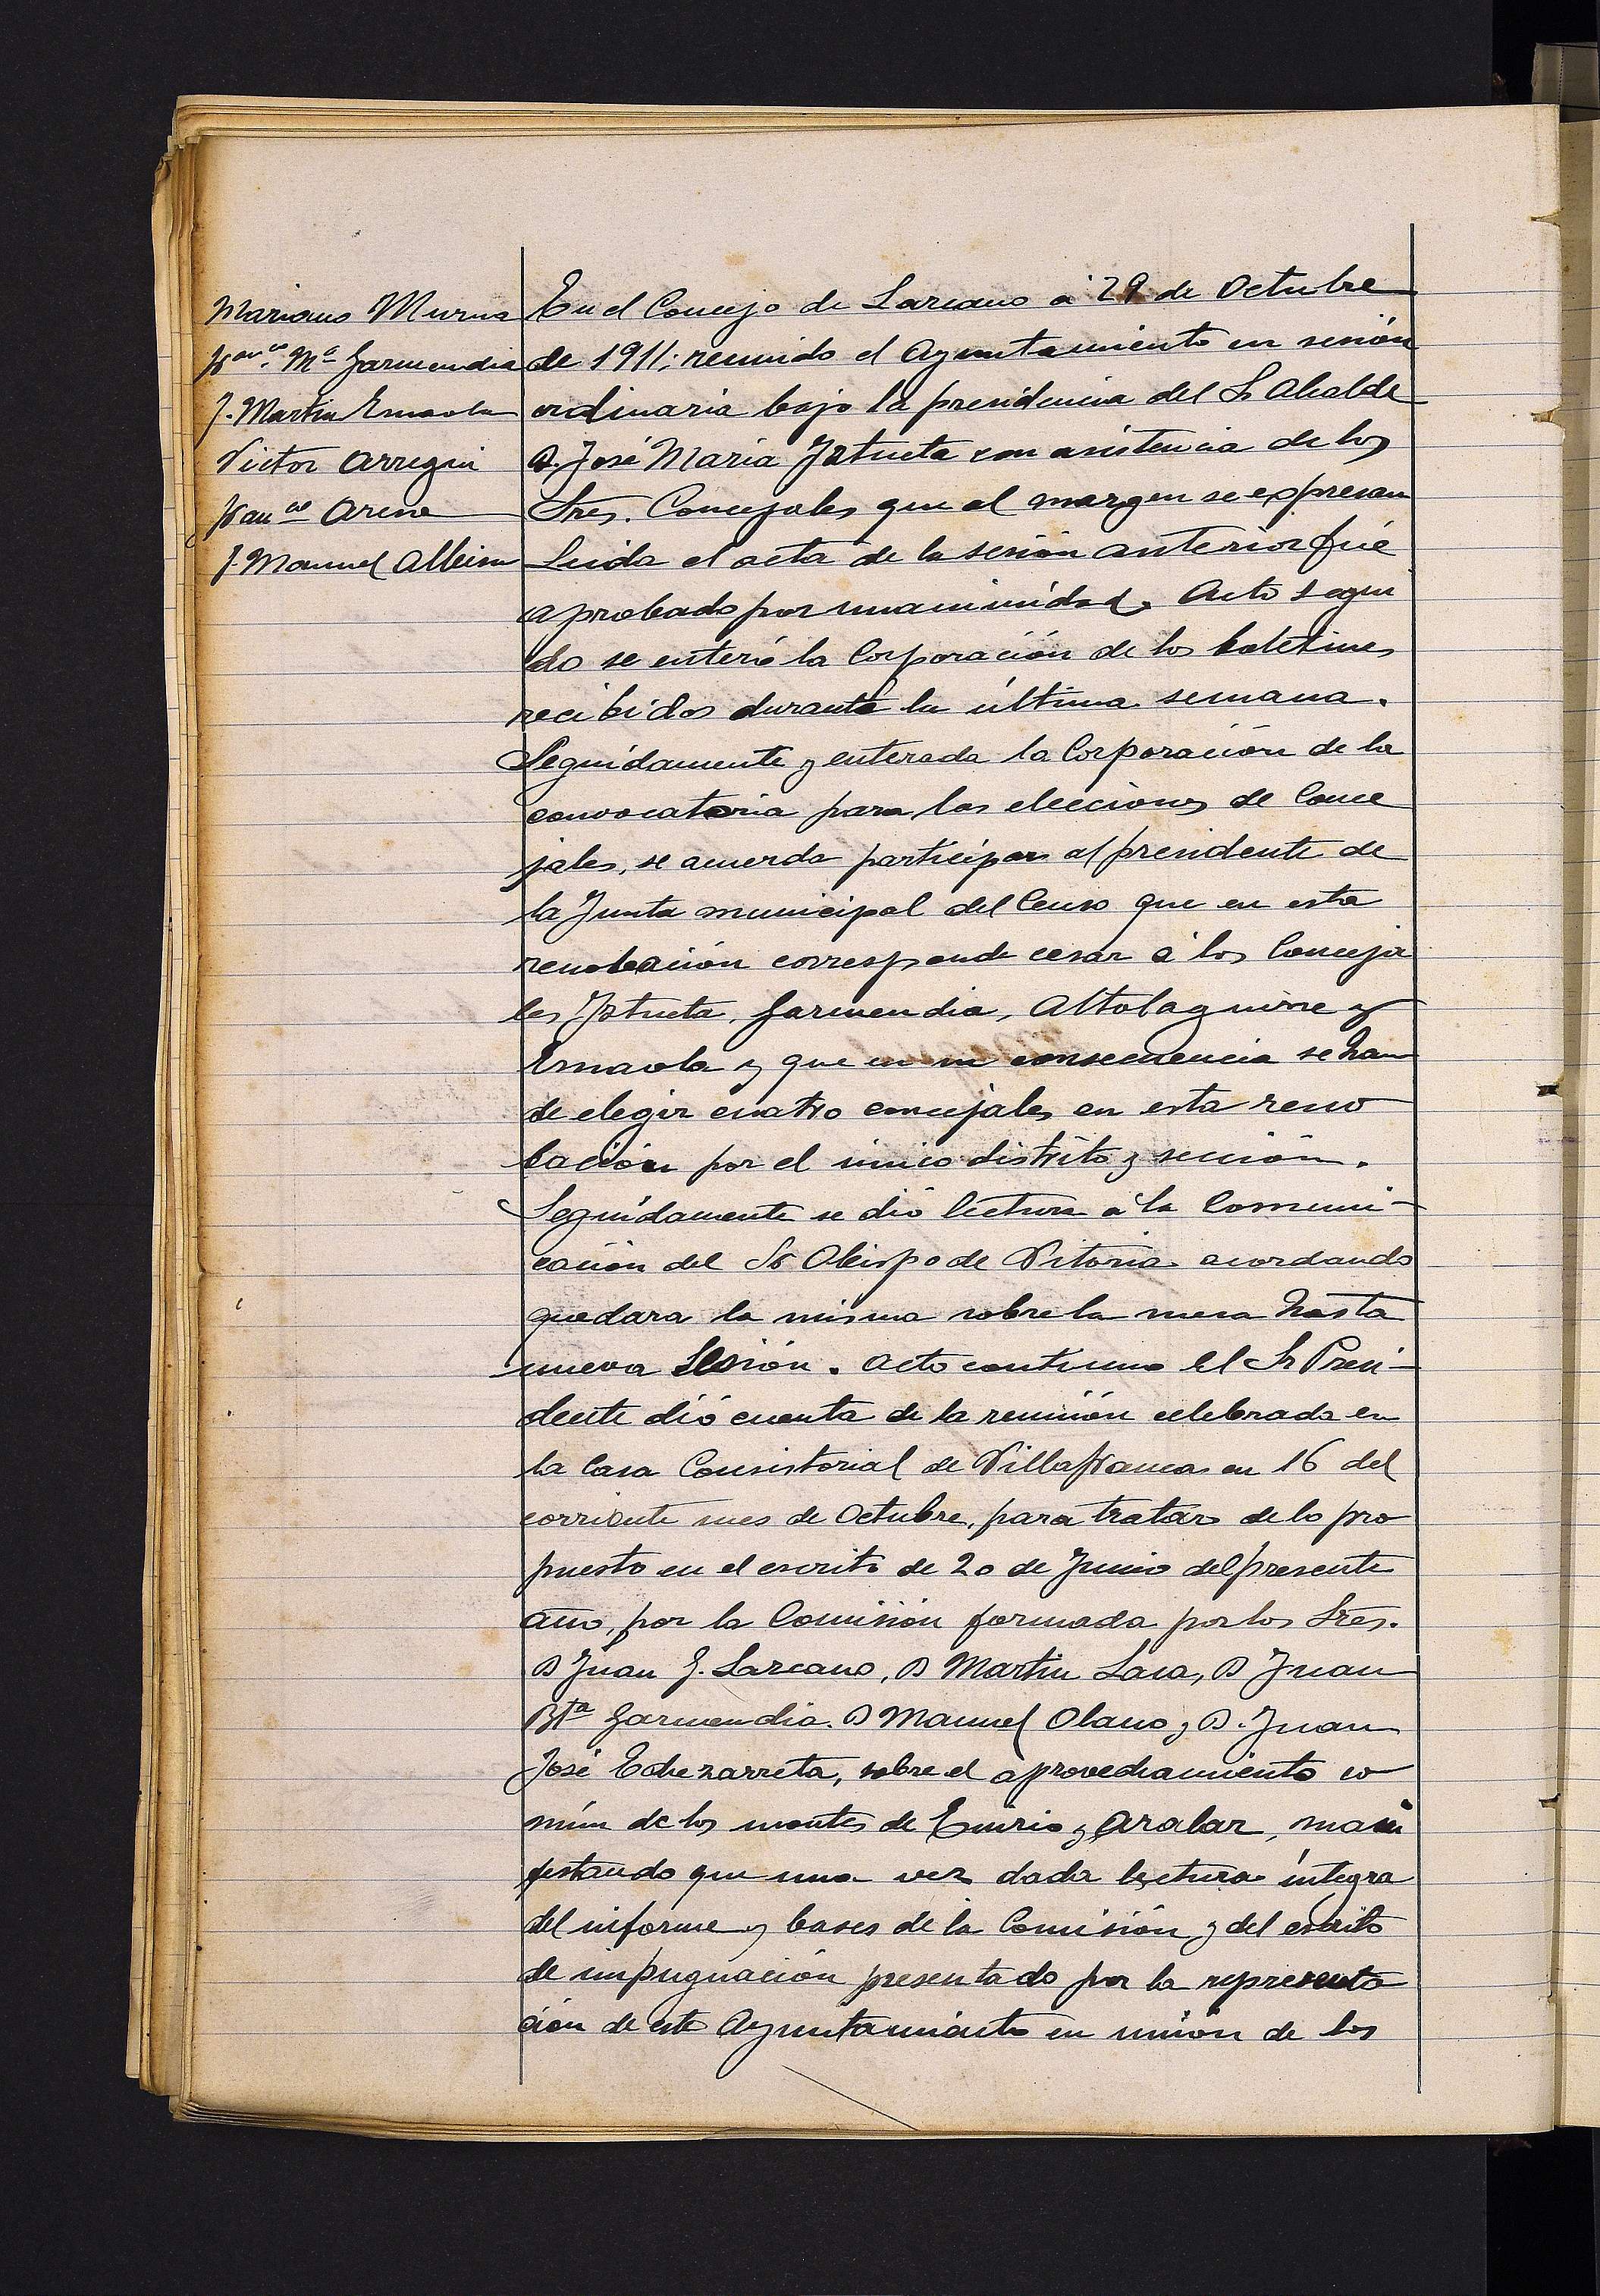 Mariano Murua
Franco. Ma Garmendia
J. Martin Ernaola
Victor Arregui
Franco Arene
J. Manuel Albisu
En el Concejo de Lazcano á 29 de Octubre
de 1911; reunido el Ayuntamiento en sesión
ordinaria bajo la presidencia del Sr Alcalde
D. José María Iztueta con asistencia de los
Sres. Concejales que al margen se expresan
Leida el acta de la sesión anterior fué
aprobado por unanimidad. Acto segui
do se enteró la Corporación de los boletines
recibidos durante la última semana.
Seguidamente y enterada la Corporación de la
convocatoria para las elecciones de Conce
jales, se acuerda participar al presidente de
la Junta municipal del Censo que en esta
renobación corresponde cesar á los Conceja
les Iztueta, Garmendia, Altolaguirre y
Ernaola y que en su consecuencia se han
de elegir cuatro concejales en esta reno
bación por el único distrito y sección.
Seguidamente se dió lectura á la Comuni-
cación del Sr Obispo de Vitoria acordando
quedara la misma sobre la mesa hasta
nueva sesión. Acto continuo el Sr Presi-
dente dió cuenta de la reunión celebrada en
la Casa Consistorial de Villafranca en 16 del
corriente mes de Octubre, para tratar de lo pro
puesto en el escrito de 20 de Junio del presente
año, por la Comisión formada por los Sres.
D Juan J. Lazcano, D Martin Lasa, D Juan
Bta Garmendia. D Manuel Olano y D. Juan
José Echezarreta, sobre el aprovechamiento co
mún de los montes de Enirio y Aralar, mani
festando que una vez dada lectura íntegra
del informe y bases de la Comisión y del escrito
de impugnación presentado por la representa
ción de este Ayuntamiento en unión de los